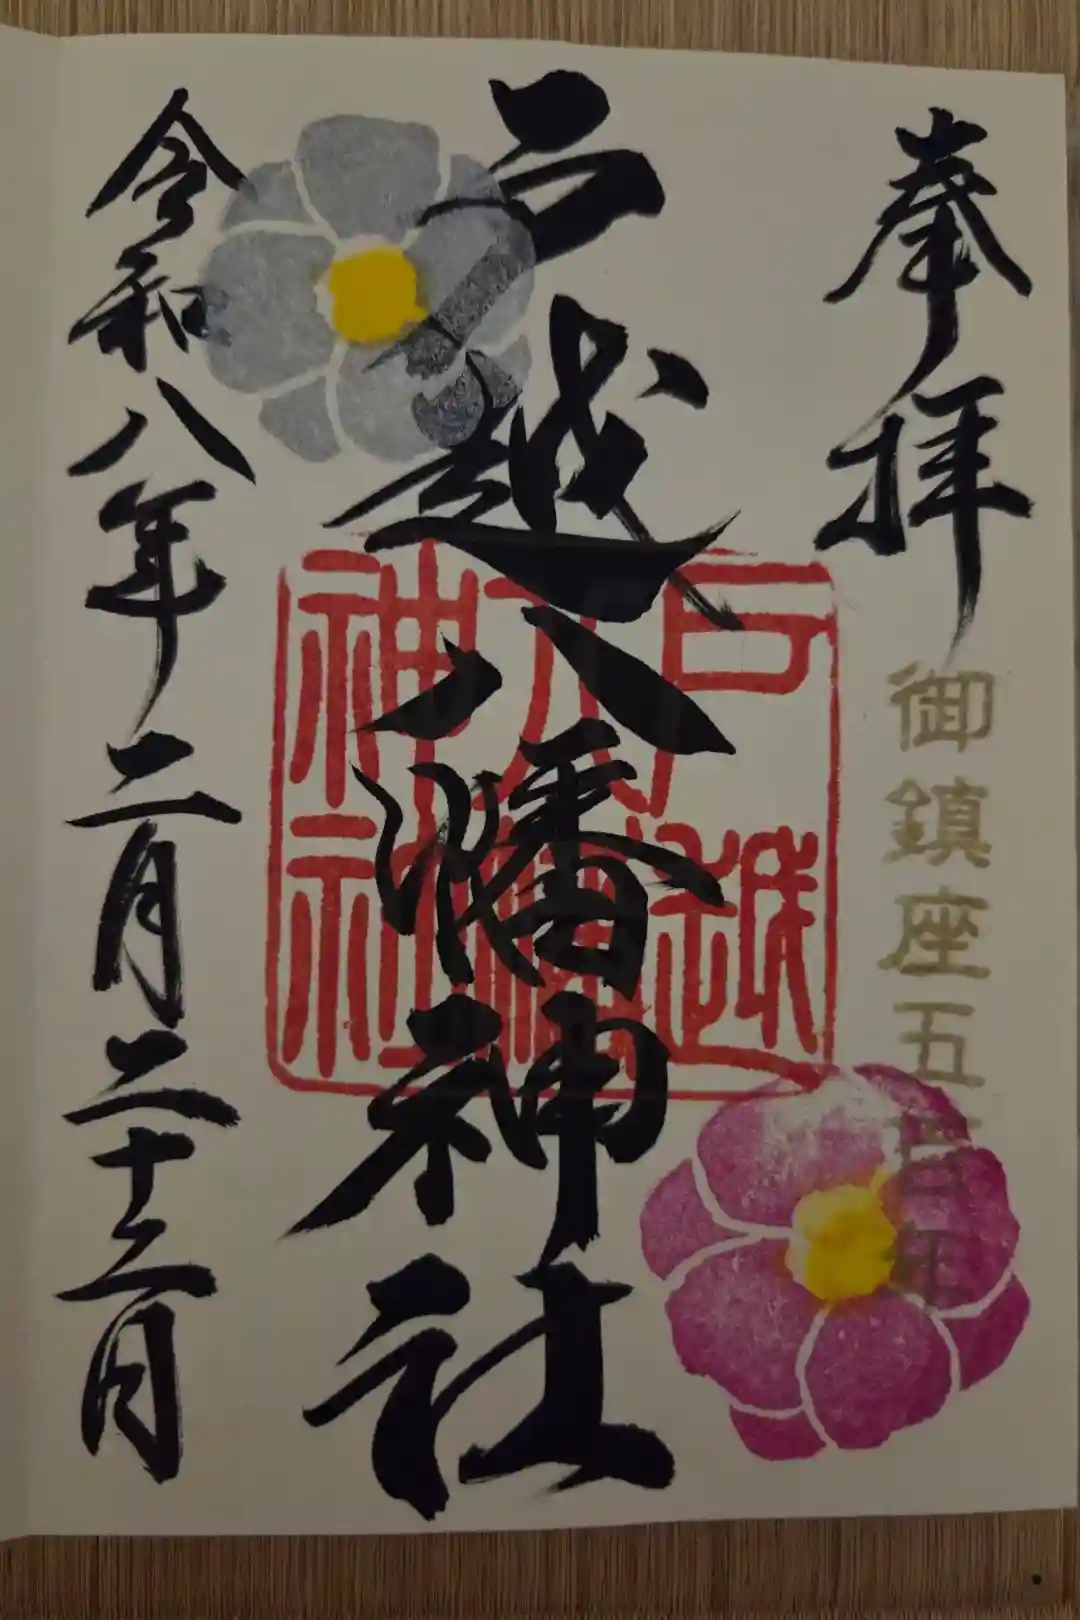 奉拝
御鎮座五百年
戸越八幡神社
戸越
八幡
神社
令和八年二月二十二日